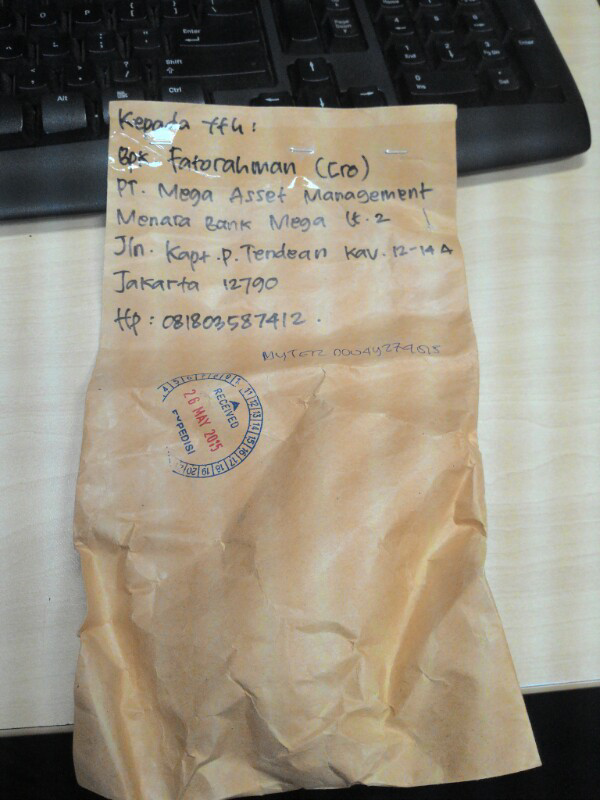 Kepada Yth:
Bpk Fatorahman (Cro)
PT. Mega Asset Management
Menara Bank Mega Lt. 2
Jln. Kapt. P. Tendean Kav. 12-14 A
Jakarta 12790
Hp: 081803587412.
RECEIVED
26 MAY 2015
EXPEDISI